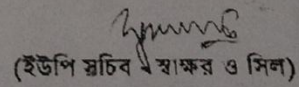 (ইউপি সচিব স্বাক্ষর ও সিল)